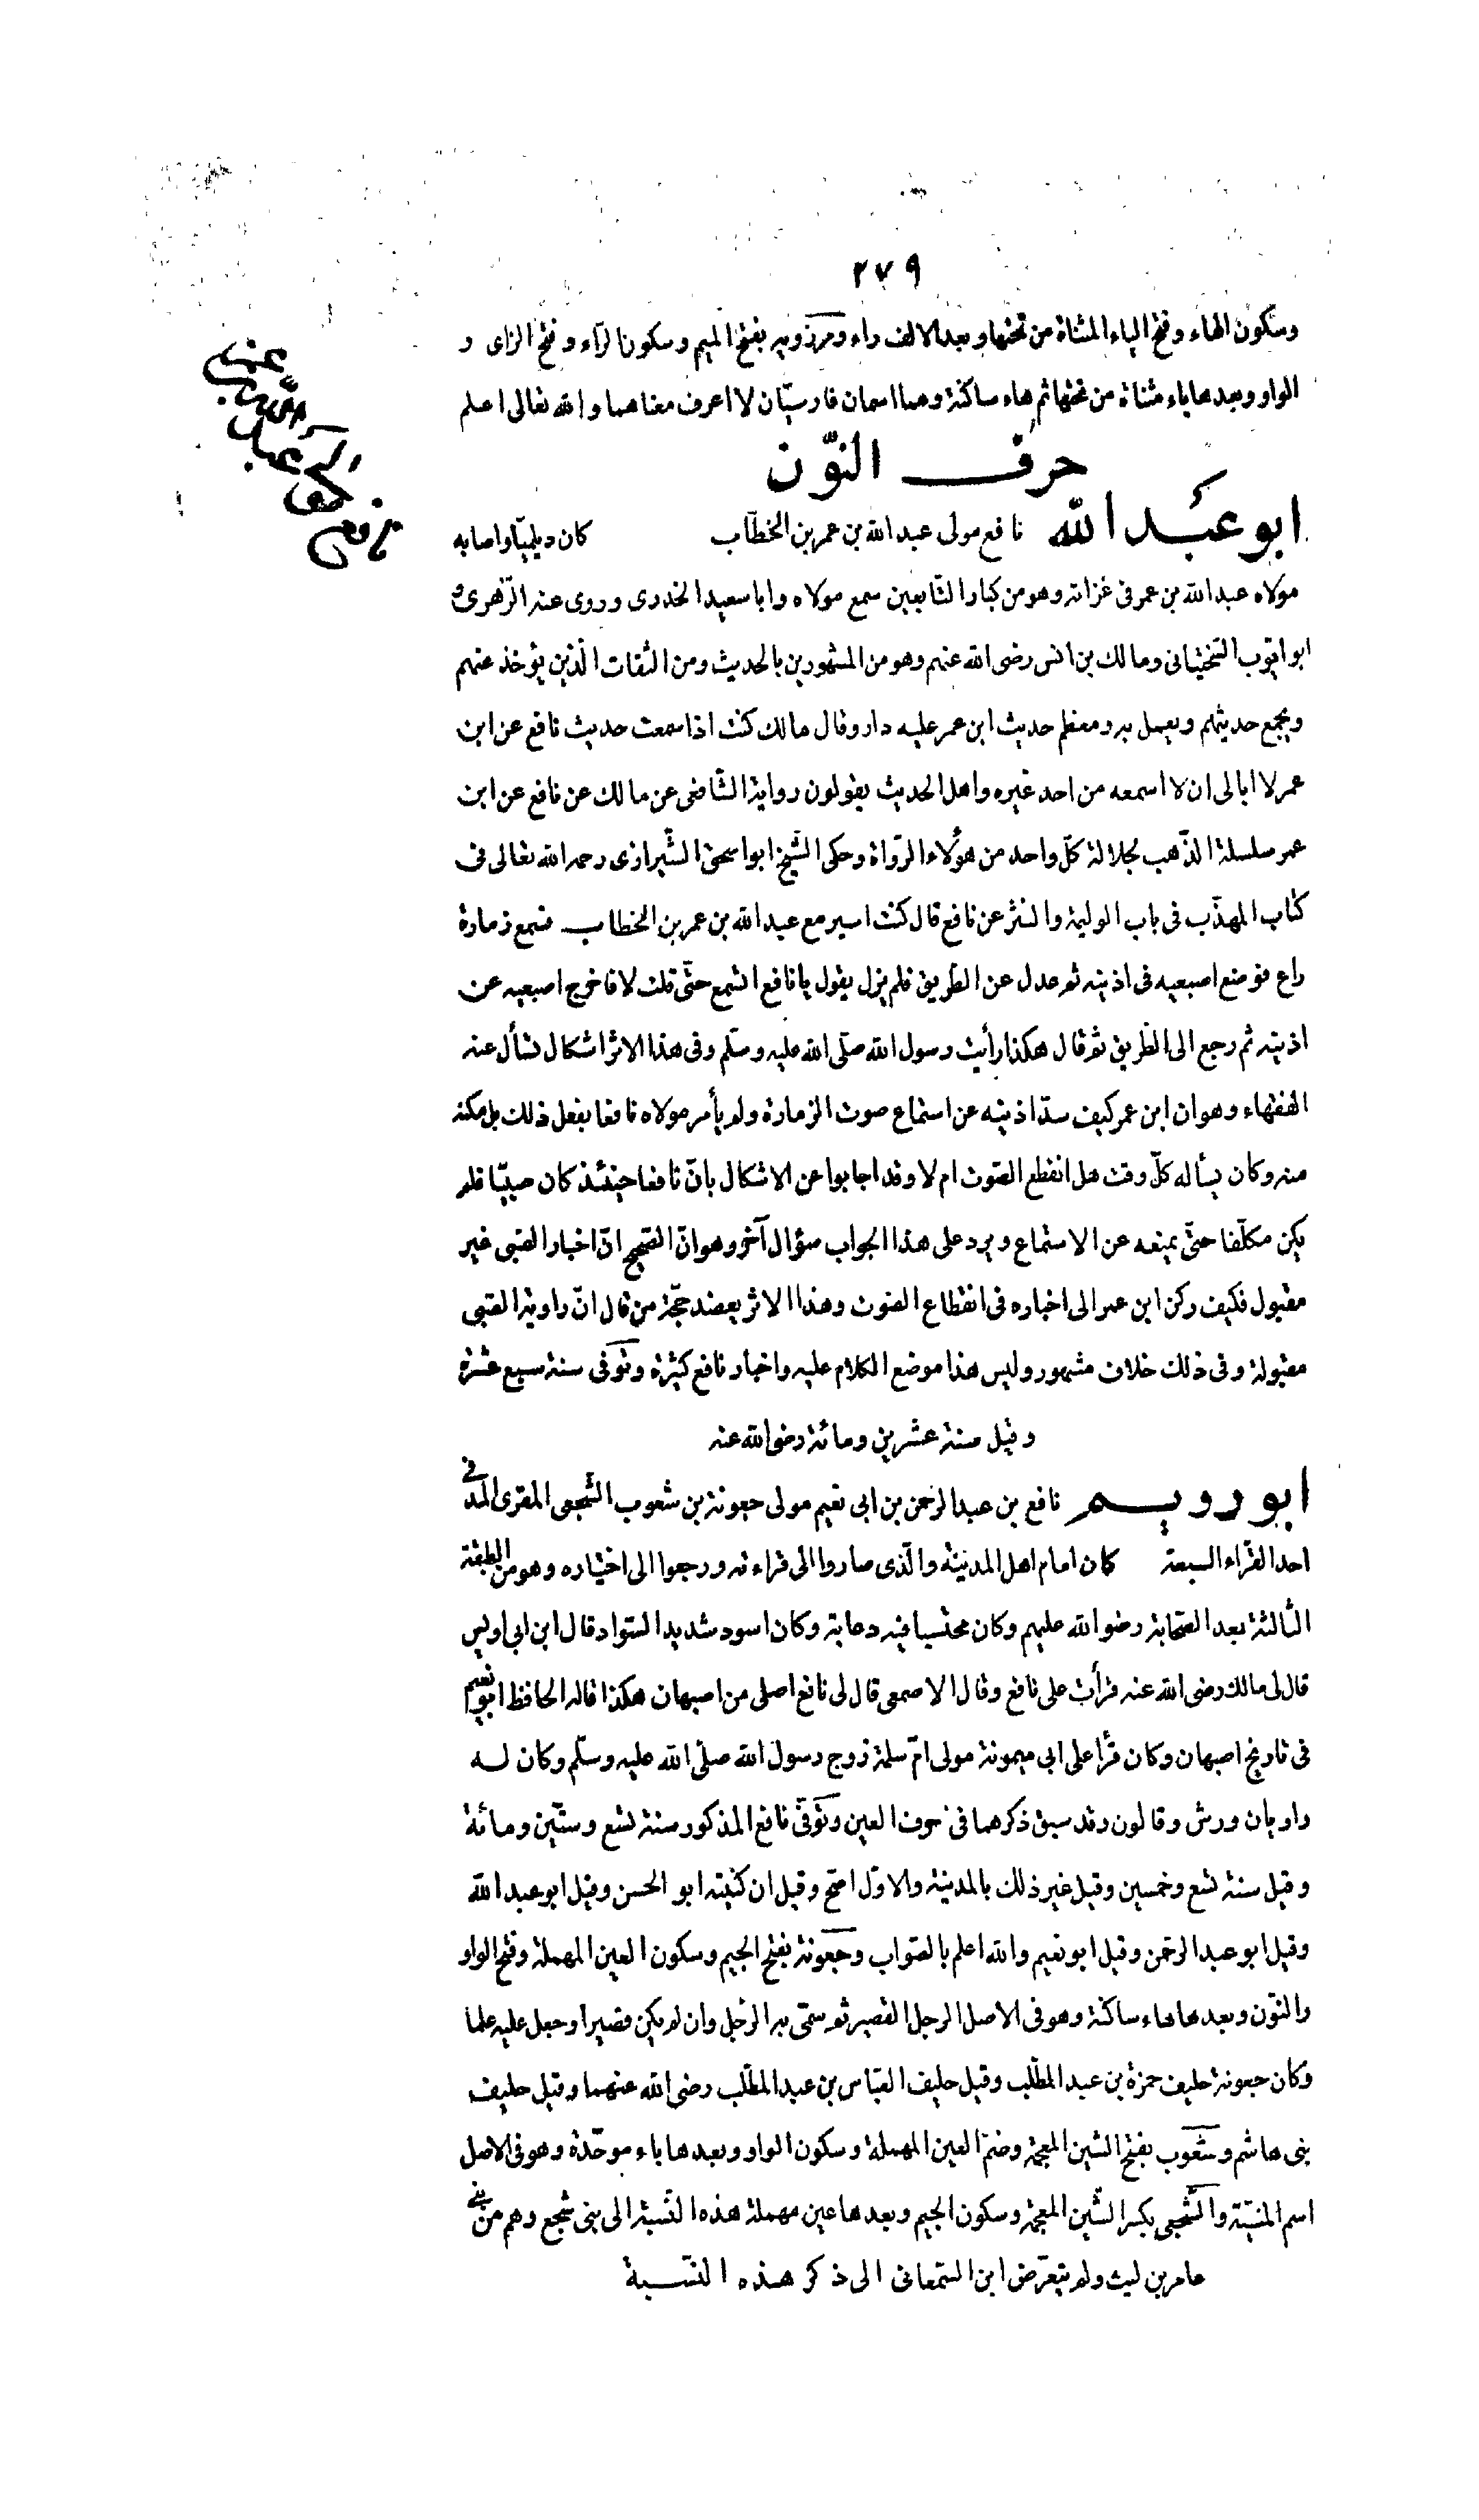 ٢٧٩
وسكون الهاء وفتح الياء المثناة من تحتها وبعد الالف راء ومرزويه بفتح الميم وسكون الرّاء وفتح الزاى و
الواو وبعدها ياء مثناة من تحتها ثم هاء ساكنة وهما اسمان فارسيّان لا اعرف معناهما والله تعالى اعلم
حرف النّون
ابو عبد الله نافع مولى عبد الله بن عمر بن الخطّاب كان ديلميّا واصابه
مولاه عبد الله بن عمر فى غزاته وهو من كبار التّابعين سمع مولاه وابا سعيد الخدرى وروى عنه الزّهرى و
ابو ايّوب السّختيانى ومالك بن انس رضى الله عنهم وهو من المشهورين بالحديث ومن الثقات الّذين يؤخذ عنهم
ويجمع حديثهم ويعمل به ومعظم حديث ابن عمر عليه دار وقال مالك كنت اذا سمعت حديث نافع عن ابن
عمر لا ابالى ان لا اسمعه من احد غيره واهل الحديث يقولون رواية الشّافعى عن مالك عن نافع عن ابن
عمر سلسلة الذّهب لجلالة كلّ واحد من هؤلاء الرّواة وحكى الشّيخ ابو اسحق الشّيرازى رحمه الله تعالى فى
كتاب المهذّب فى باب الوليمة والنثر عن نافع قال كنت اسير مع عبد الله بن عمر بن الخطاب فسمع زمارة
راع فوضع اصبعيه فى اذنيه ثم عدل عن الطّريق فلم يزل يقول يا نافع اتسمع حتّى قلت لا فاخرج اصبعيه عن
اذنيه ثم رجع الى الطّريق ثم قال هكذا رأيت رسول الله صلّى الله عليه وسلّم وفى هذا الاثر اشكال تسأل عنه
الفقهاء وهو ان ابن عمر كيف سدّ اذنيه عن استماع صوت الزمارة ولم يأمر مولاه نافعا بفعل ذلك بل مكنه
منه وكان يسأله كلّ وقت هل انقطع الصّوت ام لا وقد اجابوا عن الاشكال بانّ نافعا حينئذ كان صبيّا فلم
يكن مكلّفا حتّى يمنعه عن الاستماع ويرد على هذا الجواب سؤال آخر وهو انّ الصّحيح انّ اخبار الصّبى غير
مقبول فكيف ركن ابن عمر الى اخباره فى انقطاع الصوت وهذا الاثر يعضد حجّة من قال انّ رواية الصّبى
مقبولة وفى ذلك خلاف مشهور وليس هذا موضع الكلام عليه واخبار نافع كثيرة وتوفى سنة سبع عشرة
وقيل سنة عشرين ومائة رضى الله عنه
ابو رويم نافع بن عبد الرّحمن بن ابى نعيم مولى جعونة بن شعوب الشّجعى المقرى المدنى
احد القرّاء السبعة كان امام اهل المدينة والّذى صاروا الى قراءته ورجعوا الى اختياره وهو من الطبقة
الثّالثة بعد الصّحابة رضوالله عليهم وكان محتسبا فيه دعابة وكان اسود شديد السّواد قال ابن ابى اويس
قال لى مالك رضى الله عنه قرأت على نافع وقال الاصمعى قال لى نافع اصلى من اصبهان هكذا قاله الحافظ ابو نعيم
فى تاريخ اصبهان وكان قرأ على ابى ميمونة مولى امّ سلمة زوج رسول الله صلّى الله عليه وسلّم وكان له
راويان ورش وقالون وقد سبق ذكرهما فى حرف العين وتوفّى نافع المذكور سنة تسع وستّين ومائة
وقيل سنة تسع وخمسين وقيل غير ذلك بالمدينة والاوّل اصحّ وقيل ان كنيته ابو الحسن وقيل ابو عبد الله
وقيل ابو عبد الرّحمن وقيل ابو نعيم والله اعلم بالصّواب وجعونة بفتح الجيم وسكون العين المهملة وفتح الواو
والنّون وبعدها هاء ساكنة وهو فى الاصل الرجل القصير ثم سمّى به الرّجل وان لم يكن قصيرا وجعل عليه علما
وكان جعونة حليف حمزة بن عبد المطّلب وقيل حليف العبّاس بن عبد المطّلب رضى الله عنهما وقيل حليف
بنى هاشم وشعوب بفتح الشين المعجمة وضمّ العين المهملة وسكون الواو وبعدها باء موحّدة وهو فى الاصل
اسم المنيّة والشّجعى بكسر الشّين المعجمة وسكون الجيم وبعدها عين مهملة هذه النّسبة الى بنى شجع وهم من بنى
عامر بن ليث ولم يتعرّض ابن السّمعانى الى ذكر هذه النّسبة
نافع